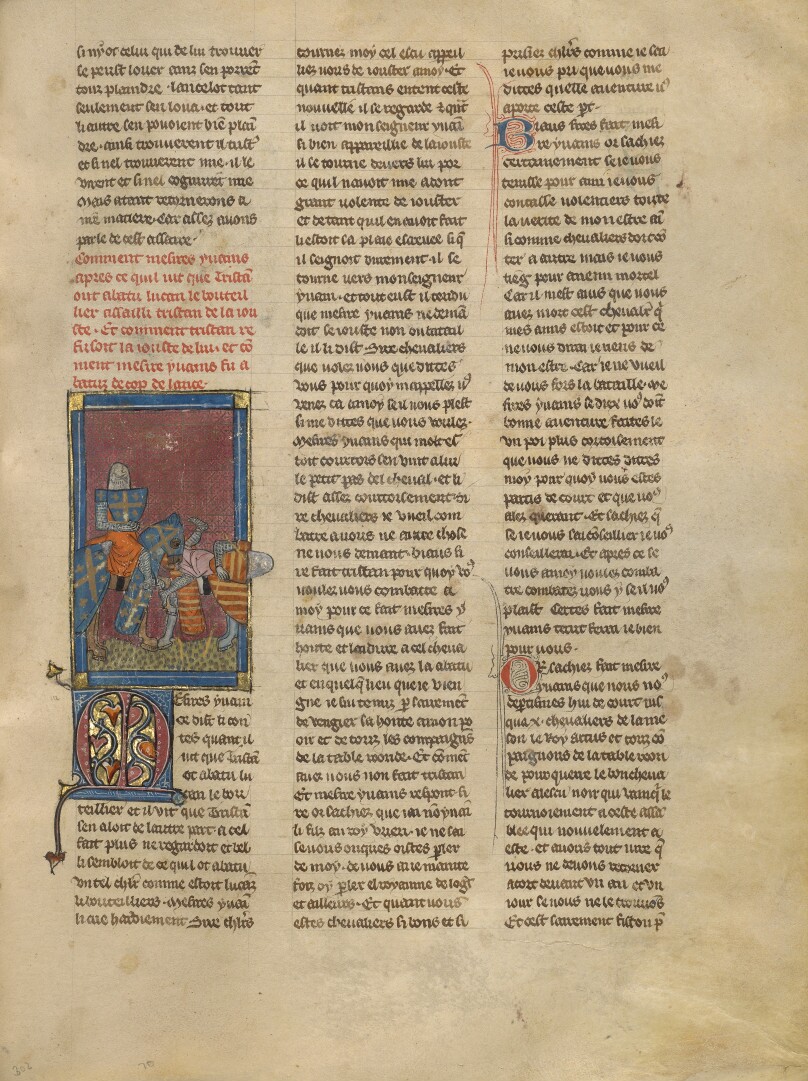 si nyot celui qui de lui trouver
se peust louer auns sen porroit
touz plaindre lancelot tout
seulement sen loua et tout
li autre sen pouoient biē plaī
dre ainsi trouverent il tristā
et si nel trouverent mie il le
virent et si nel cognurent mie
Mais atant retournerons a
nr̄e matiere Car assez auons
parle de cest affaire
Comment mesires yuains
apres ce quil vit que Tristā
ont abatu lucan le bouteil
lier assailli tristan de la iou
ste Et comment tristan re
fusoit la iouste de lui et cō
ment mesire yuains fu a
batuz de cop de lance
Mesires yuain
ce dist li con
tes quant il
vit que Tristā
ot abatu lu
can le bou
teillier et il vit que Tristā
sen aloit de lautre part a cel
fait plus ne regardoit et bel
li sembloit de ce quil ot abatu
Un tel chlr comme estoit lucan
li bouteilliers Mesires yuaī
li crie hardiement Sire chlrs
tournez moy cel escu appeil
liez uous de iouster a moy Et
quant tristans entent ceste
nouuelle il se regarde et qnt
il uoit monseigneur yuaī
si bien appareillie de la iouste
il se tourne deuers lui por
ce quil nauoit mie adont
grant uolente de iouster
et de tant quil en auoit fait
li estoit sa plaie escreuee si q̄
il seignoit durement il se
tourne vers monseigneur
yuain et tout eust il tendu
que mesire yuains ne demā
doit se iouste non outatail
le il li dist Sire cheualiers
que uolez uous que dittes
vous pour quoy mappellez uo9
venez ca a moy se il uous plest
si me dittes que uous voulez
Mesires yuains qui moult es
toit courtois sen vint a lui
le petit pas del cheual et li
dist assez courtoisement Si
re cheualiers ie vueil com
batre a uous ne autre chose
ne uous demant Biaus si
re fait tristan pour quoy vo9
voulez uous combatre a
moy pour ce fait mesires y
uains que uous auez fait
honte et laidure a cel cheua
lier que uous auez la abatu
et en quelq̄ lieu que ie vien
gne ie sui tenuz p̄ sairement
de vengier sa honte a mon po
oir et de touz les compaignōs
de la table roonde Et cōment
auez uous non fait tristan
Et mesire yuains respont si
re or sachiez que iai nō yuaī
li filz au roy Urien ie ne sai
se uous onques oistes p̄ler
de moy de uous ai ie mainte
foiz oy p̄ler el royaume de logr̄
et ailleurs Et quant uous
estes cheualiers si bons et si
prisiez chlrs comme ie sai
ie uous pri que uous me
dittes quelle auenture uo9
aporte ceste p̄t
Biaus sires fait mesi
re yuains or sachiez
certainement se ie uous
tenisse pour ami ie uous
contasse volentiers toute
la uerite de mon estre aī
si comme cheualiers doit cō
ter a autre mais ie uous
tieg pour anemi mortel
Car il mest auis que uous
auez mort cest cheualr̄ q̄
mes amis estoit et pour ce
ne uous dirai ie riens de
mon estre Car ie ne vueil
de uous fors la bataille
sires yuains se diex uo9 doit
bonne auenture faites le
Un poi plus cortoisement
que uous ne dittes dittes
moy pour quoy uous estes
partis de court et que uo9
alez querant Et sachiez q̄
se ie uous sai cōseillier ie uo9
conseillerai Et apres ce se
uous a moy voulez comba
tre combatez uous y se il uo9
plaist Certes fait mesire
yuains tout ferai ie bien
pour uous
Or sachiez fait mesire
yuains que nous no9
departismes hui de court iusq̄
qua x cheualiers de la me
son le Roy artus et touz cō
paignons de la table roon
de pour querre le bon cheua
lier a lescu noir qui vainqi le
tournoiement a ceste assā
blee qui nouuelement a
este et auons tout iure q̄
nous ne deuons retorner
a cort deuant un an et un
iour se nous ne le trouuōs
Et cest sairement fist on p̄